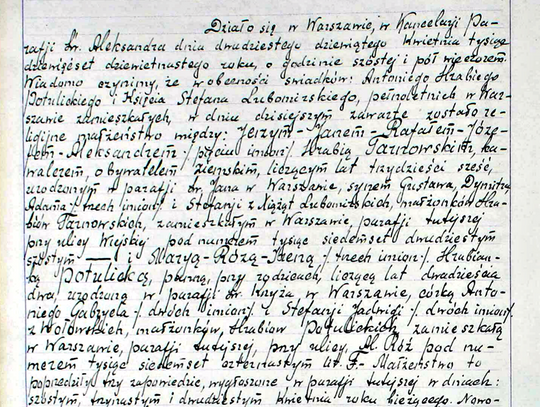 Działo się w Warszawie, w Kancelarji Pa-
rafji Św. Aleksandra dnia dwudziestego dziewiątego Kwietnia tysiąc
dziewięćset dziewiętnastego roku, o godzinie szóstej i pół wieczorem.
Wiadomo czynimy, że w obecności świadków: Antoniego Hrabiego
Potulickiego i Księcia Stefana Lubomirskiego, pełnoletnich w War-
szawie zamieszkałych, w dniu dzisiejszym zawarte zostało re-
ligijne małżeństwo między: Jerzym-Janem-Rafałem-Józe-
fem-Aleksandrem /: pięciu imion :/ Hrabią Tarnowskim, ka-
walerem, obywatelem ziemskim, liczącym lat trzydzieści sześć,
urodzonym w parafji Św. Jana w Warszawie, synem Gustawa, Dymitra
Adama /: trech imion :/ i Stefanji z Książąt Lubomirskich, małżonków Hra-
biów Tarnowskich, zamieszkałym w Warszawie, parafji tutejszej
przy ulicy Wiejskiej pod numerem tysiąc siedemset dwudziestym
szóstym — i Maryą-Rózą-Ireną /: trech imion :/ Hrabian-
ką Potulicką, panną, przy rodzicach, liczącą lat dwadzieścia
dwa, urodzoną w parafji Św. Krzyża w Warszawie, córką Anto-
niego Gabryela /: dwóch imion :/ i Stefanji Jadwigi /: dwóch imion :/
z Wołowskich, małżonków, Hrabiów Potulickich, zamieszkałą
w Warszawie, parafji tutejszej, przy ulicy Al Róż pod nu-
merem tysiąc siedemset czternastym lit. F.- Małżeństwo to
poprzedziły trzy zapowiedzie, wygłoszone w parafji tutejszej w dniach:
szóstym, trzynastym i dwudziestym Kwietnia roku bieżącego. Nowo-